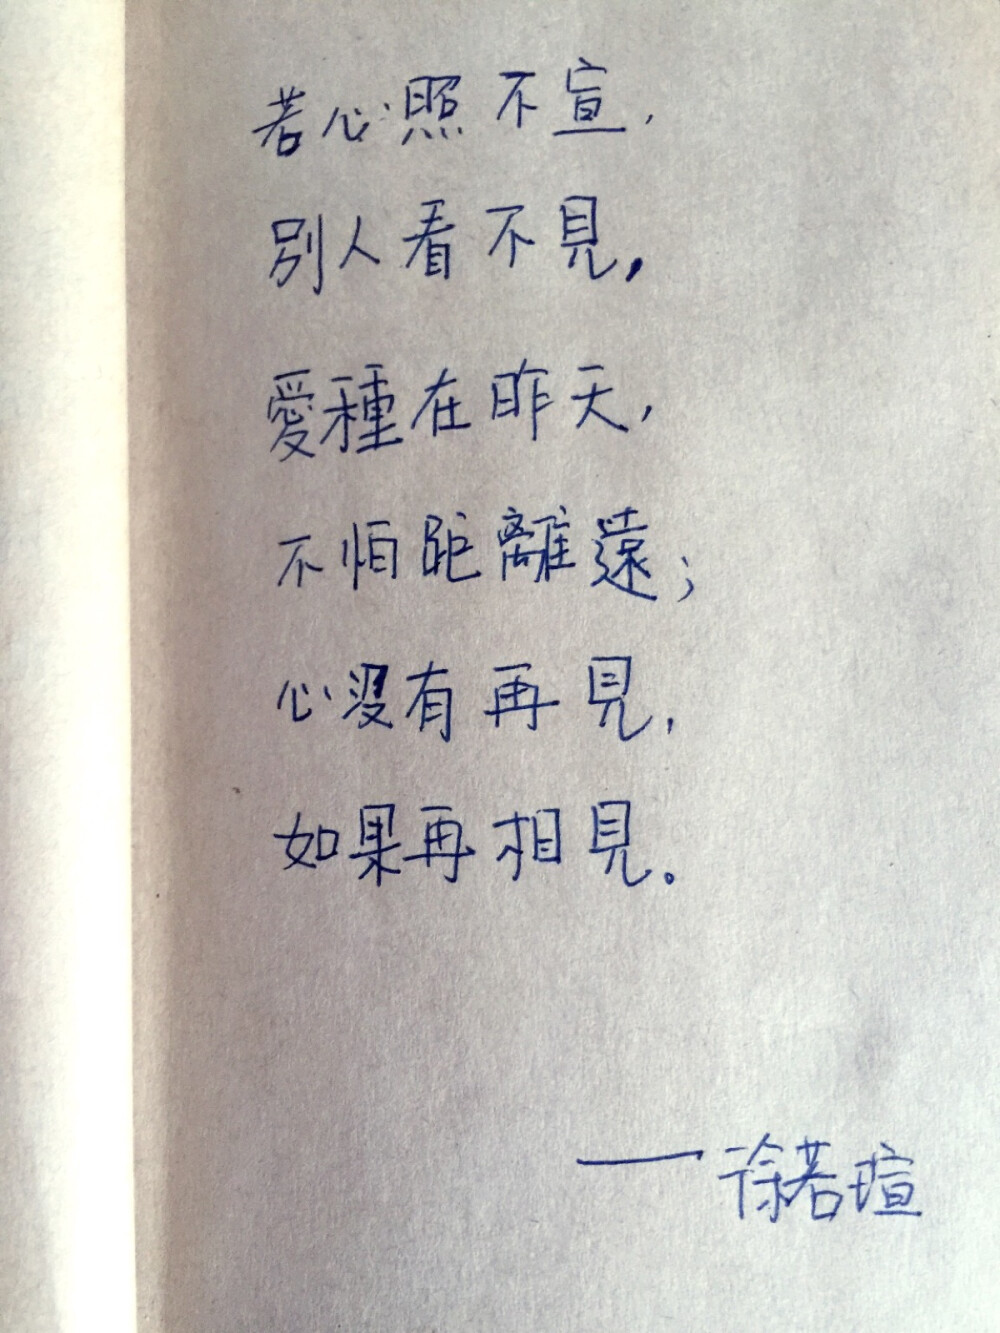 若心照不宣,
別人看不見,
愛種在昨天,
不怕距離遠;
心沒有再見,
如果再相見。
——徐若瑄